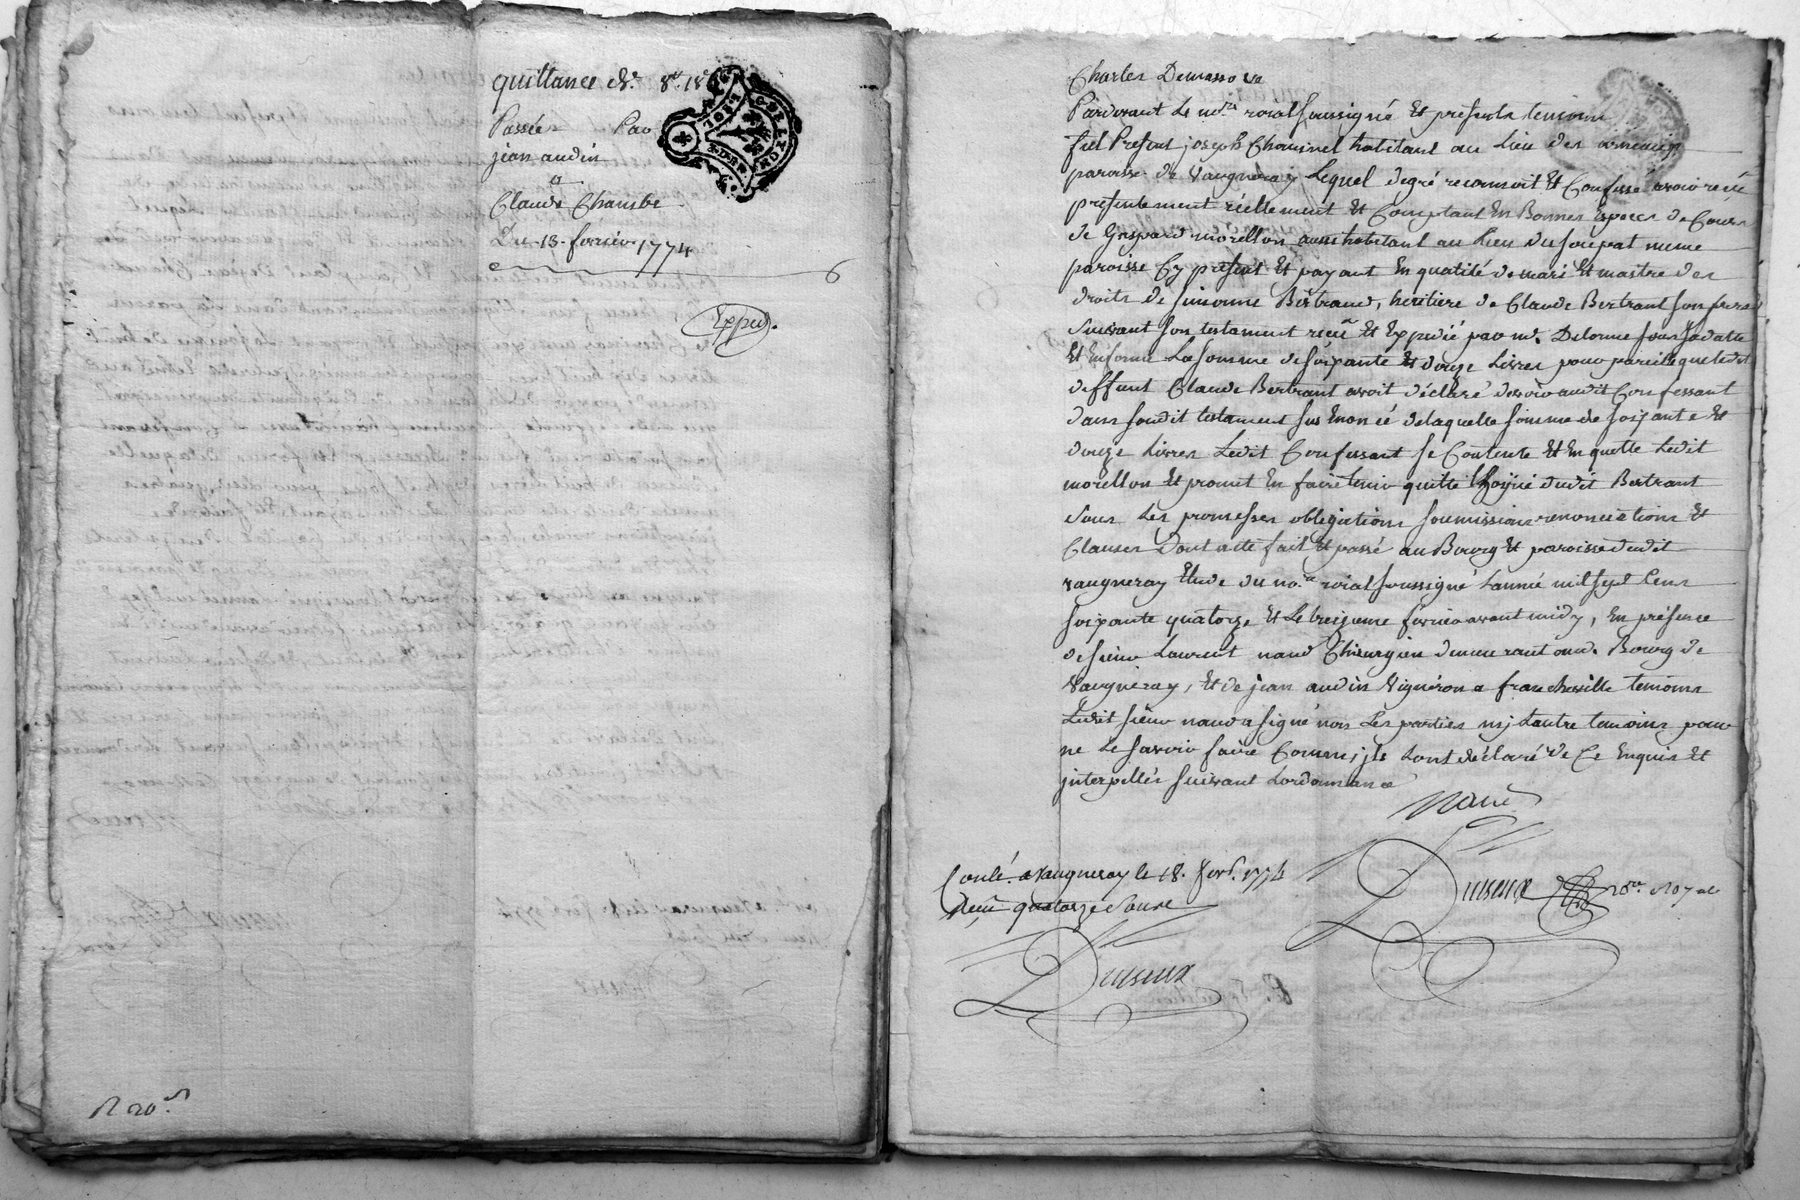 quittance de
Passée Par
jean audin
a
Claude Chambe
Du 13 fevrier 1774
Exped.
GEN DE LYON
Charles
Pardevant Le no.re roial soussigné Et presents temoins
fut Present joseph Chausinel habitant au Lieu des
paroisse de Vaugneray Lequel degré reconnoit Et Confesse avoir recu
presentement réellement Et Comptant En Bonnes Especes de Cours
de Gaspard morellon aussi habitant au Lieu du meme
paroisse Cy present Et payant En qualité de mari Et maitre des
droits de simonne Bertrand, heritiere de Claude Bertrant son frere
Suivant son testament recu Et Expedié par me. Delorme sous sa datte
Et En forme La somme de soixante Et douze Livres pour pareille que ledit
deffunt Claude Bertrant avoit déclaré devoir audit Confessant
dans sondit testament sus Enoncé de laquelle somme de soixante Et
douze Livres Ledit Confessant se Contente Et En quitte Ledit
morellon Et promet En faire tenir quitte l'hoirie dudit Bertrant
Sous Les promesses obligations soumissions renonciations Et
Clauses Dont acte fait Et passé au Bourg Et paroisse dudit
vaugneray Etude du no.re roial soussigné Lannée mil sept Cens
soixante quatorze Et Le treizieme fevrier avant midy, En présence
de sieur Laurent naud Chirurgien demeurant aud. Bourg de
Vaugneray, Et de jean audin Vigneron a francheville temoins
Ledit sieur naud a signé non Les parties nj Lautre temoins pour
ne Le savoir faire Comme ils Lont déclaré de Ce Enquis Et
interpellés suivant Lordonnance
naud
Dusurux no.re royal
Conlé. a Vaugneray le 18. fevr. 1774
Recu quatorze sous
Dusurux